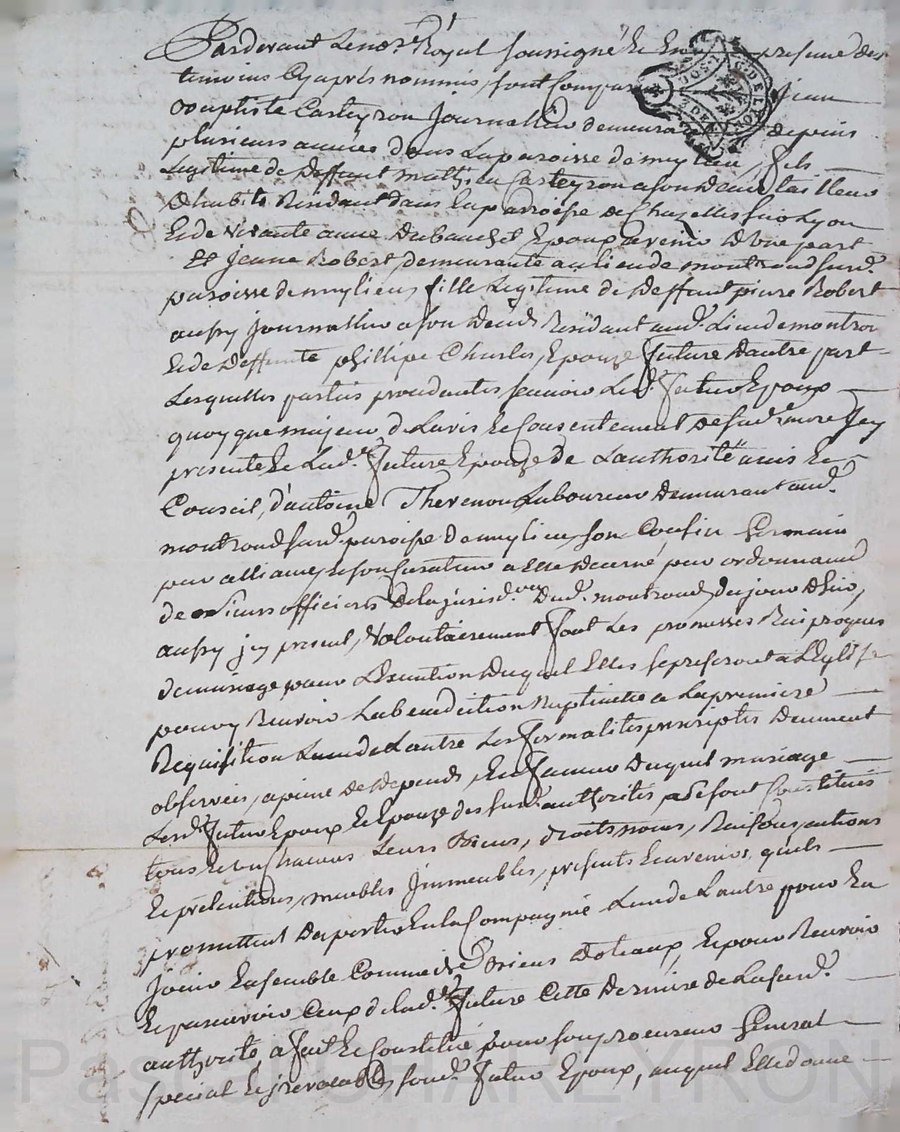 Pardevant Le no.re Royal soussigné Et En presence des
temoins Cy après nommés, sont Compar Jean
Baptiste Casteyron Journallier demeura depuis
plusieurs année dans La paroisse de mylieu, fils
Legitime de deffunt mathieu Casteyron a son deceds tailleur
d'habits Residant dans la parroisse de Chazelles sur Lyon
Et de vivante anne Dubanchet Epoux avenir d'Une part
Et Jeanne Robert demeurante au lieu de montrond susd.
paroisse de mylieu, fille Legitime de deffunt pierre Robert
aussy Journallier a son deceds Residant aud. Lieu de montron
Et de deffunte phillipe Charles, Epouze future d'autre part
Lesquelles parties proceddantes scavoir Led. futur Epoux
quoy que majeur de L'avis Et Consentement de sad. mere Jcy
presente Et Lad. future Epouze de L'authorité avis Et
Conseil d'antoine Thevenon Laboureur demeurant aud.
montrond susd. paroisse de mylieu, son Cousin Germain
par alliance, Et son Curateur a Elle decerné par ordonnance
de Sieurs officiers de la jurisd. dud. montrond du jour d'hier,
aussy jcy present, Volontairement font Les promesses Reciproques
de mariage pour L'Execution duquel Elles se presenteront a L'Eglise
pour y Recevoir La benediction Nuptialle a La premiere
Requisition L'un de L'autre Les formalités prescriptes deument
observées, a peine de depends, En faveur duquel mariage
Lesd. futur Epoux Et Epouze des susd. authorités, Se sont Constitués
tous Et un chacuns Leurs Biens, droits, noms, Raisons, actions
Et pretentions, meubles Jmmeubles, presents Et avenirs, quils
promettent Se porter En la Compagnie L'un de L'autre pour En
Jouir Ensemble Comme de Biens dotaux, Et pour Recevoir
Et parcevoir Ceux de Lad. future Cette derniere de La susd.
authorité a fait Et Constitué pour son procureur General
special Et jrrevocable, sond. futur Epoux, auquel Elle donne
Pascal CHAREYRON